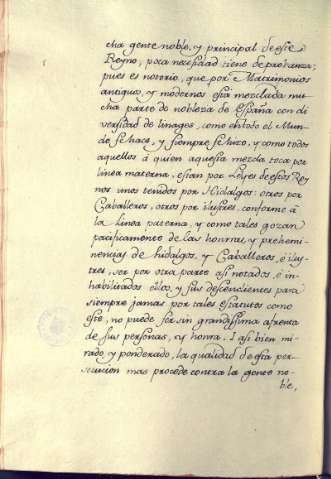 cha gente noble, y principal de este
Reyno, poca necesidad tiene de probanza;
pues es notorio, que por Matrimonios
antiguos, y modernos està mezclada mu-
cha parte de nobleza de España con di-
versidad de linages, como en todo el Mun-
do se hace, y siempre se hizo, y como todos
aquellos à quien aquesta mezcla toca por
linea materna, estan por Leyes de estos Rey
nos unos tenidos por Hidalgos: otros por
Caballeros, otros por ilustres, conforme à
la Linea paterna, y como tales gozan
pacificamente de las honras, y prehemi-
nencias de hidalgos, y Caballeros, è ilus-
tres, ser por otra parte asi notados, è in-
habilitados ellos, y sus descendientes para
siempre jamas por tales estatutos como
este, no puede ser sin grandissima afrenta
de sus personas, y honra. I asi bien mi-
rado y ponderado, la qualidad de esta per-
secucion mas procede contra la gente no-
ble,